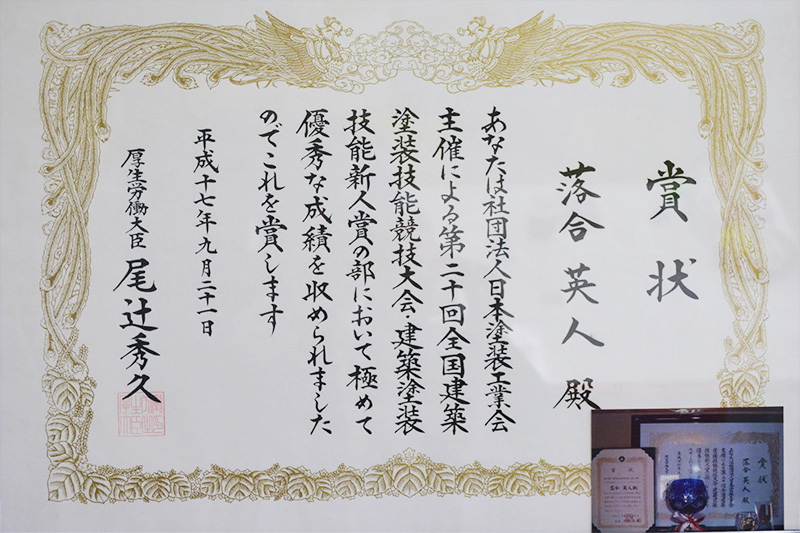 賞状
落合英人殿
あなたは社団法人日本塗装工業会
主催による第二十回全国建築
塗装技能競技大会・建築塗装
技能新人賞の部において極めて
優秀な成績を収められました
のでこれを賞します
平成十七年九月二十一日
厚生労働大臣 尾辻秀久
賞状
落合英人殿
賞状
落合英人殿